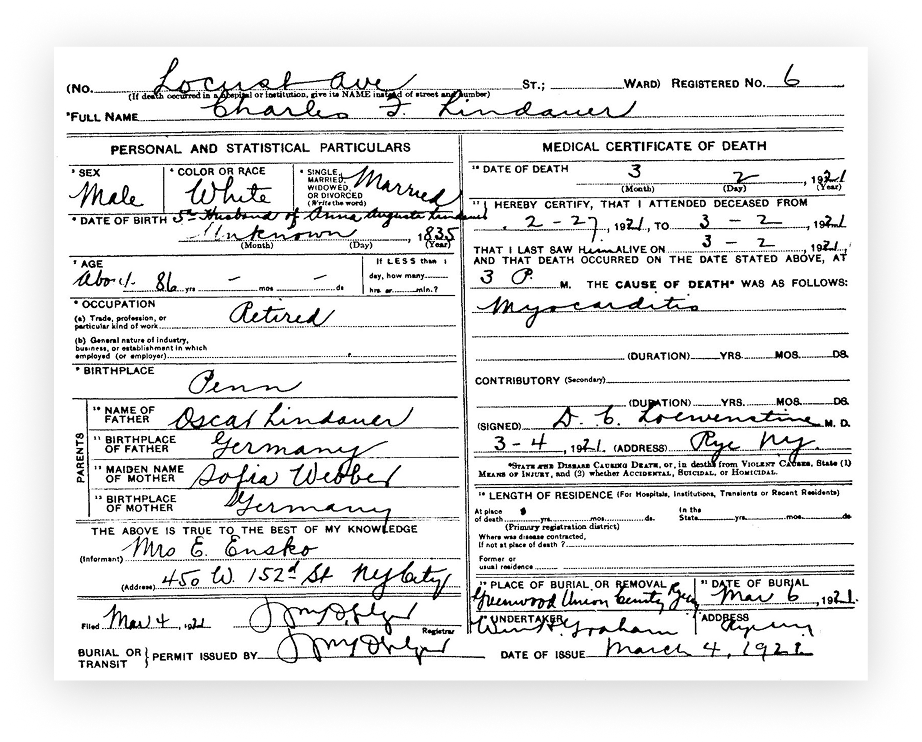 (No. Locust Ave ST.; WARD) REGISTERED NO. 6
(If death occurred in a hospital or institution, give its NAME instead of street and number)
*FULL NAME Charles F. Lindauer
PERSONAL AND STATISTICAL PARTICULARS
* SEX
Male
* COLOR OR RACE
White
* SINGLE, MARRIED, WIDOWED, OR DIVORCED (Write the word)
Married
* DATE OF BIRTH 5a Husband of Anna Augusta Lindauer
Unknown, 1835
(Month) (Day) (Year)
7 AGE
About 86 yrs – mos – ds
If LESS than 1
day, how many
hrs or min.?
* OCCUPATION
(a) Trade, profession, or
particular kind of work Retired
(b) General nature of industry,
business, or establishment in which
employed (or employer)
* BIRTHPLACE
Penn
PARENTS
10 NAME OF
FATHER Oscar Lindauer
11 BIRTHPLACE
OF FATHER Germany
12 MAIDEN NAME
OF MOTHER Sofia Webber
13 BIRTHPLACE
OF MOTHER Germany
THE ABOVE IS TRUE TO THE BEST OF MY KNOWLEDGE
(Informant) Mrs E. Ensko
(Address) 450 W. 152d St NyCity
Filed Mar 4, 1921
Registrar
BURIAL OR
TRANSIT } PERMIT ISSUED BY
MEDICAL CERTIFICATE OF DEATH
16 DATE OF DEATH 3 2, 1921
(Month) (Day) (Year)
17 I HEREBY CERTIFY, THAT I ATTENDED DECEASED FROM
2 - 27, 1921, TO 3 - 2 1921
THAT I LAST SAW Him ALIVE ON 3 - 2 1921,
AND THAT DEATH OCCURRED ON THE DATE STATED ABOVE, AT
3 P. M. THE CAUSE OF DEATH* WAS AS FOLLOWS:
Myocarditis
(DURATION) YRS. MOS. DS.
CONTRIBUTORY (Secondary)
(DURATION) YRS. MOS. DS.
(SIGNED) D. C. Loewenstine M. D.
3 - 4, 1921 (ADDRESS) Rye Ny.
*STATE THE DISEASE CAUSING DEATH, or, in deaths from VIOLENT CAUSES, State (1)
MEANS OF INJURY, and (2) whether ACCIDENTAL, SUICIDAL, or HOMICIDAL.
18 LENGTH OF RESIDENCE (For Hospitals, Institutions, Transients or Recent Residents)
At place
of death yrs. mos. ds.
In the
State yrs. mos. ds.
(Primary registration district)
Where was disease contracted,
if not at place of death ?
Former or
usual residence
19 PLACE OF BURIAL OR REMOVAL
Greenwood Union Rye
21 DATE OF BURIAL
Mar 6, 1921.
UNDERTAKER
Wm H. Graham
ADDRESS
DATE OF ISSUE March 4, 1921